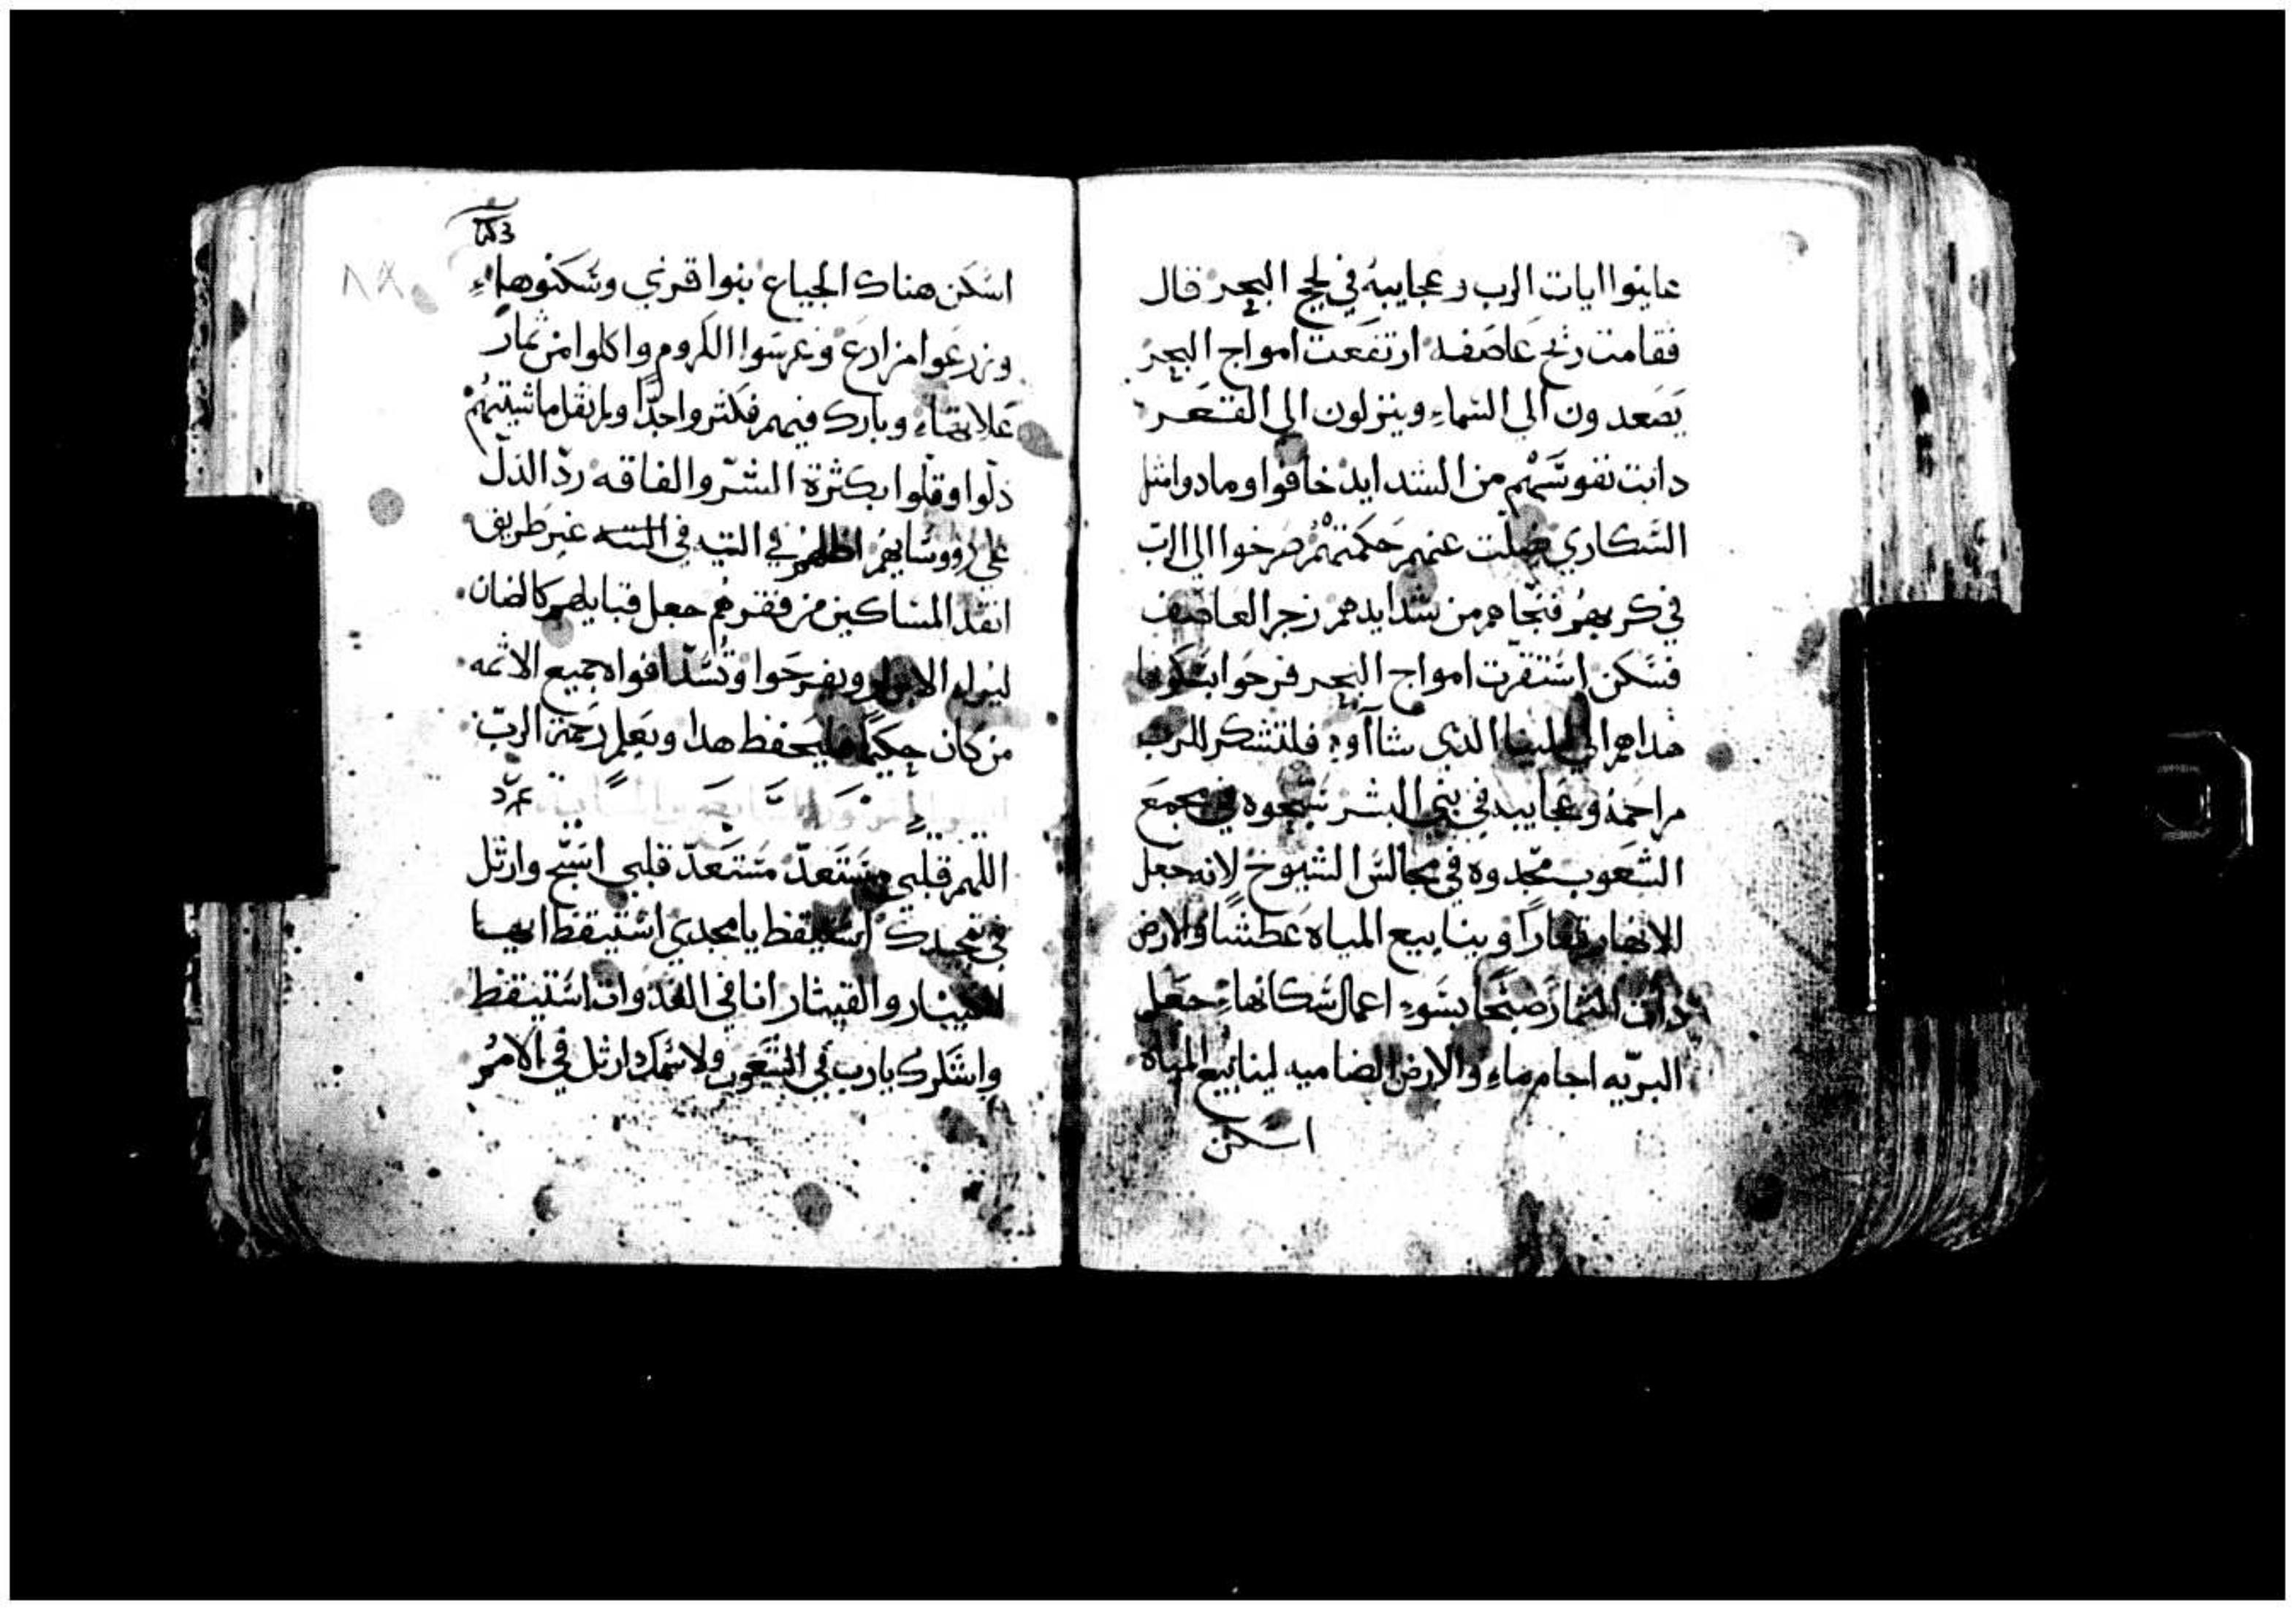 عاينوا ايات الرب وعجايبه في لجج البحر قال
فقامت ريح عاصفه ارتفعت امواج البحر
يصعدون الى السماء وينزلون الى القعر
دابت نفوسهم من الشدايد خافوا ومادوا مثل
السكاري ضلت عنهم حكمتهم صرخوا الى الرب
في كربهم فنجاهم من شدايدهم زجر العاصف
فسكن استقرت امواج البحر فرحوا بسكونها
هداهم الى الذي شاأوه فلتشكر للرب
مراحمه وعجايبه في بني البشر في مجمع
الشعوب مجدوه في مجالس الشيوخ لانه جعل
الانهار قفارا وينابيع المياه عطشا والارض
ذات الثمار بسوء اعمال سكانها جعل
البريه اجام ماء والارض الضاميه لينابيع المياه
اسكن
اسكن هناك الجياع بنوا قري وسكنوها
وزرعوا مزارع وغرسوا الكروم واكلوا من ثمار
غلاتها وبارك فيهم فكثروا جدا ولم يقل ماشيتهم
ذلوا وقلوا بكثرة الشر والفاقه ردّ الذلّ
على رؤوسايهم في التيه في التيه غير طريق
انقذ المساكين من فقرهم جعل قبايلهم كالضان
الابرار ويفرحوا وتسد افواه جميع الاثمه
من كان حكيما فليحفظ هدا ويعلم رحمة الربّ
اللهم قلبي مستعدّ مستعدّ قلبي اسبح وارتل
في تمجيدك استيقظ يامجدي استيقظ ايها
والقيثار انا في الغدوات استيقظ
واشكرك يارب في الشعوب ولاسمك ارتل في الامم